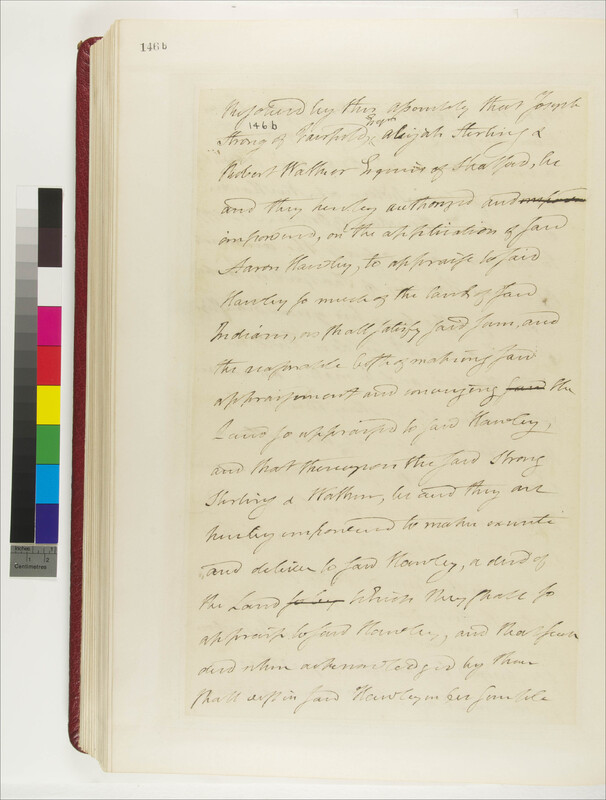 146b
Resolved by this Assembly that Joseph
146b
Strong of Fairfield, Esqr Abijah Sterling &
Robert Walker Esquires of Stratford, be
and they hereby authorized and
impowered, on the application of said
Aaron Hawley, to appraise to said
Hawley so much of the land of said
Indians, as shall satisfy said sum, and
the reasonable costs of making said
appraisement and conveying said the
Land so appraised to said Hawley,
and that thereupon the said Strong
Sterling & Walker, be and they are
hereby impowered to make execute
and deliver to said Hawley, a deed of
the Land so by which they shall so
appraise to said Hawley, and that such
deed when acknowledged by them
shall vest in said Hawley in fee simple
Inches
1
2
Centimetres